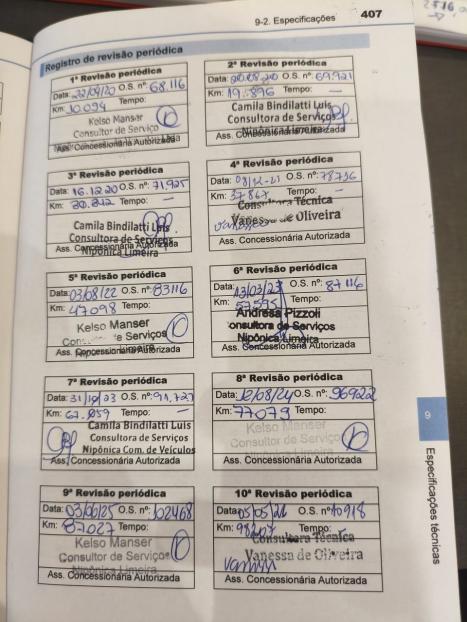 9-2. Especificações 407
Registro de revisão periódica
1ª Revisão periódica
Data: 22/04/20 O.S. nº: 68.116
Km: 10.094 Tempo:
Kelso Manser
Consultor de Serviço
Ass. Concessionária Autorizada
2ª Revisão periódica
Data: O.S. nº: 69.921
Km: 19.896 Tempo: —
Camila Bindilatti Luis
Consultora de Serviços
Nipônica Limeira
Ass. Concessionária Autorizada
3ª Revisão periódica
Data: 16.12.20 O.S. nº: 71.925
Km: Tempo: —
Camila Bindilatti Luis
Consultora de Serviços
Nipônica Limeira
Ass. Concessionária Autorizada
4ª Revisão periódica
Data: O.S. nº: 78716
Km: 37867 Tempo: —
Consultora Técnica
Vanessa de Oliveira
Ass. Concessionária Autorizada
5ª Revisão periódica
Data: 03/08/22 O.S. nº: 83116
Km: 47098 Tempo:
Kelso Manser
Ass. Concessionária Autorizada
6ª Revisão periódica
Data: 13/03/23 O.S. nº: 87116
Km: 57595 Tempo:
Andresa Pizzoli
Consultora de Serviços
Nipônica Limeira
Ass. Concessionária Autorizada
7ª Revisão periódica
Data: 31/10/23 O.S. nº: 91.727
Km: 67.059 Tempo: —
Camila Bindilatti Luis
Consultora de Serviços
Nipônica Com. de Veículos
Ass. Concessionária Autorizada
8ª Revisão periódica
Data: 12/08/24 O.S. nº: 96922
Km: 77079 Tempo:
Kelso Manser
Consultor de Serviço
Ass. Concessionária Autorizada
9ª Revisão periódica
Data: 03/06/25 O.S. nº: 102468
Km: 87027 Tempo:
Kelso Manser
Consultor de Serviços
Nipônica Limeira
Ass. Concessionária Autorizada
10ª Revisão periódica
Data: O.S. nº:
Km: Tempo:
Consultora Técnica
Vanessa de Oliveira
Ass. Concessionária Autorizada
9
Especificações técnicas